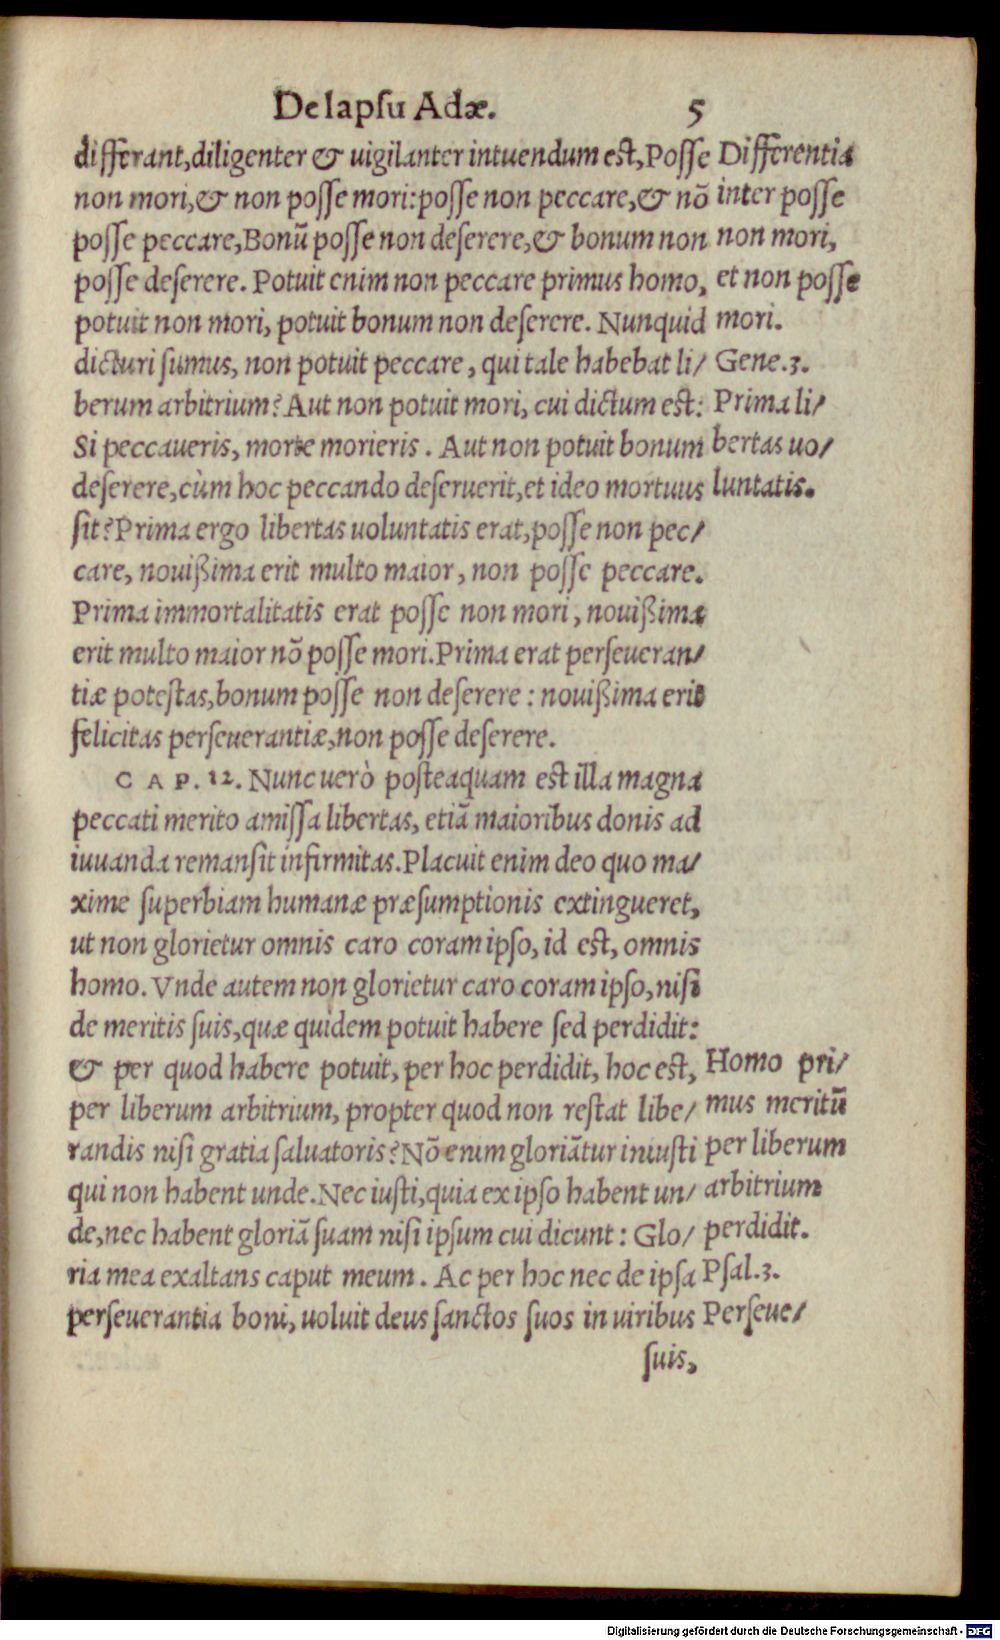 De lapſu Adæ. 5
differant,diligenter & uigilanter intuendum eſt,Poſſe
non mori,& non poſſe mori:poſſe non peccare,& nõ
poſſe peccare,Bonũ poſſe non deſerere,& bonum non
poſſe deſerere. Potuit enim non peccare primus homo,
potuit non mori, potuit bonum non deſerere. Nunquid
dicturi ſumus, non potuit peccare, qui tale habebat li/
berum arbitrium? Aut non potuit mori, cui dictum eſt:
Si peccaueris, morte morieris. Aut non potuit bonum
deſerere,cùm hoc peccando deſeruerit,et ideo mortuus
ſit? Prima ergo libertas uoluntatis erat,poſſe non pec/
care, nouißima erit multo maior, non poſſe peccare.
Prima immortalitatis erat poſſe non mori, nouißima
erit multo maior nõ poſſe mori. Prima erat perſeueran/
tiæ poteſtas,bonum poſſe non deſerere: nouißima erit
felicitas perſeuerantiæ,non poſſe deſerere.
CAP. 12. Nunc uerò poſteaquam eſt illa magna
peccati merito amiſſa libertas, etiã maioribus donis ad
iuuanda remanſit infirmitas. Placuit enim deo quo ma/
xime ſuperbiam humanæ præſumptionis extingueret,
ut non glorietur omnis caro coram ipſo, id eſt, omnis
homo. Vnde autem non glorietur caro coram ipſo, niſi
de meritis ſuis,quæ quidem potuit habere ſed perdidit:
& per quod habere potuit, per hoc perdidit, hoc eſt,
per liberum arbitrium, propter quod non reſtat libe/
randis niſi gratia ſaluatoris? Nõ enim gloriãtur iniuſti
qui non habent unde. Nec iuſti,quia ex ipſo habent un/
de,nec habent gloriã ſuam niſi ipſum cui dicunt: Glo/
ria mea exaltans caput meum. Ac per hoc nec de ipſa
perſeuerantia boni, uoluit deus ſanctos ſuos in uiribus
ſuis,
Differentia
inter poſſe
non mori,
et non poſſe
mori.
Gene.3.
Prima li/
bertas uo/
luntatis.
Homo pri/
mus meritũ
per liberum
arbitrium
perdidit.
Pſal.3.
Perſeue/
Digitalisierung gefördert durch die Deutsche Forschungsgemeinschaft - DFG